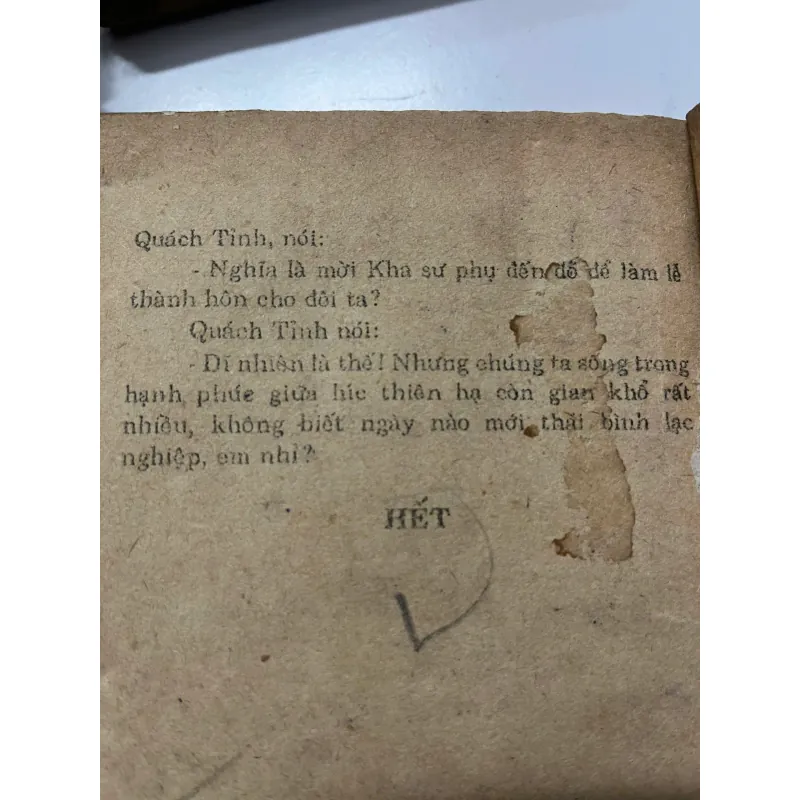 Quách Tỉnh, nói:
- Nghĩa là mời Kha sư phụ đến đó để làm lễ
thành hôn cho đôi ta?
Quách Tỉnh nói:
- Dĩ nhiên là thế! Nhưng chúng ta sống trong
hạnh phúc giữa lúc thiên hạ còn gian khổ rất
nhiều, không biết ngày nào mới thái bình lạc
nghiệp, em nhỉ?
HẾT